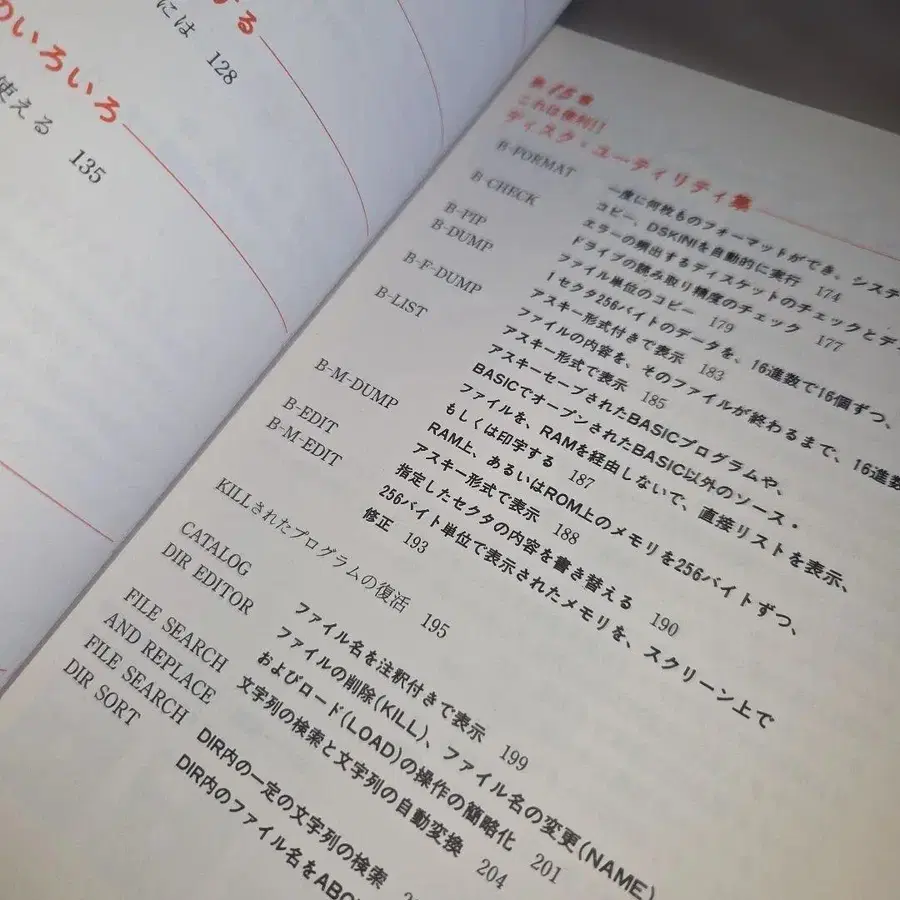 する
には 128
のいろいろ
使える 135
第15章
これは便利!!
ディスク・ユーティリティ集
B-FORMAT 一度に何枚ものフォーマットができ、システ
コピー、DSKINIを自動的に実行 174
B-CHECK エラーの頻出するディスケットのチェックとデ
ドライブの読み取り精度のチェック 177
B-PIP ファイル単位のコピー 179
B-DUMP 1セクタ256バイトのデータを、16進数で16個ずつ、
アスキー形式付きで表示 183
B-F-DUMP ファイルの内容を、そのファイルが終わるまで、16進数
アスキー形式で表示 185
B-LIST アスキーセーブされたBASICプログラムや、
BASICでオープンされたBASIC以外のソース・
ファイルを、RAMを経由しないで、直接リストを表示、
もしくは印字する 187
B-M-DUMP RAM上、あるいはROM上のメモリを256バイトずつ、
アスキー形式で表示 188
B-EDIT 指定したセクタの内容を書き替える 190
B-M-EDIT 256バイト単位で表示されたメモリを、スクリーン上で
修正 193
KILLされたプログラムの復活 195
CATALOG ファイル名を注釈付きで表示 199
DIR EDITOR ファイルの削除(KILL)、ファイル名の変更(NAME)
およびロード(LOAD)の操作の簡略化 201
FILE SEARCH 文字列の検索と文字列の自動変換 204
AND REPLACE
FILE SEARCH DIR内の一定の文字列の検索
DIR SORT DIR内のファイル名をABC